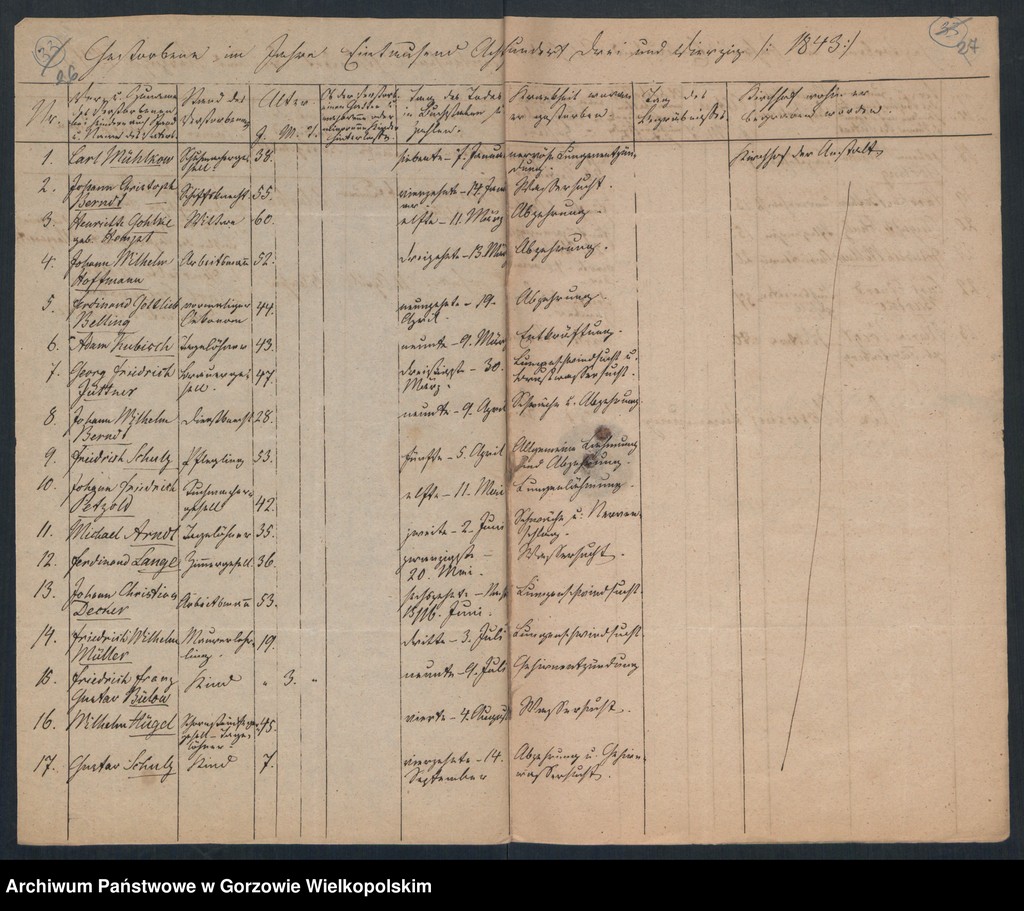 33
26
33
27
Gestorbene im Jahre Eintausend Achthundert Drei und Vierzig /: 1843 :/
Nr. Vor- u. Zuname des Verstorbenen bei Kindern auch Stand u. Name des Vaters Stand des Verstorbenen Alter J. M. T. Tag des Todes in Buchstaben u. Zahlen. Krankheit woran er gestorben Tag des Begräbnisses Kirchhof wohin er begraben worden.
1. Carl Mühlkow Schuhmachergesell. 38. siebente - 7. Januar nervöse Lungenentzündung. Kirchhof der Anstalt
2. Johann Christoph Berndt Schiffsknecht 55. vierzehnte - 14. Januar Wassersucht.
3. Henriette Gohlke geb. Wittwe 60. elfte - 11. März Abzehrung.
4. Johann Wilhelm Hoffmann Arbeitsmann 52. dreizehnte - 13. März Abzehrung.
5. Ferdinand Gottlieb Belling vormaliger Oekonom 44. neunzehnte - 19. April. Abzehrung
6. Adam Kubisch Tagelöhner 43. neunte - 9. März Entkräftung.
7. Georg Friedrich Jüttner Brauergesell. 47. dreißigste - 30. März. Lungenschwindsucht u. Brustwassersucht.
8. Johann Wilhelm Berndt Dienstknecht 28. neunte - 9. April Schwäche u. Abzehrung.
9. Friedrich Schulz Pflegling 53. fünfte - 5. April Allgemeine Lähmung und Abzehrung.
10. Johann Friedrich Petzold Tuchmachergesell 42. elfte - 11. Mai Lungenlähmung.
11. Michael Arndt Tagelöhner 35. zweite - 2. Juni Schwäche u. Nervenschlag.
12. Ferdinand Lange Zimmergesell 36. zwanzigste - 20. Mai. Wassersucht.
13. Johann Christian Decker Arbeitsmann 53. sechszehnte - 16. Juni. Lungenschwindsucht.
14. Friedrich Wilhelm Müller Maurerlehrling. 19. dritte - 3. Juli Lungenschwindsucht
15. Friedrich Franz Gustav Bülow Kind " 3. " neunte - 9. Juli Gehirnentzündung
16. Wilhelm Hügel Schornsteinfegergesell - Tagelöhner 45. vierte - 4. August Wassersucht.
17. Gustav Schulz Kind 7. vierzehnte - 14. September Abzehrung u. Gehirnwassersucht.
Archiwum Państwowe w Gorzowie Wielkopolskim